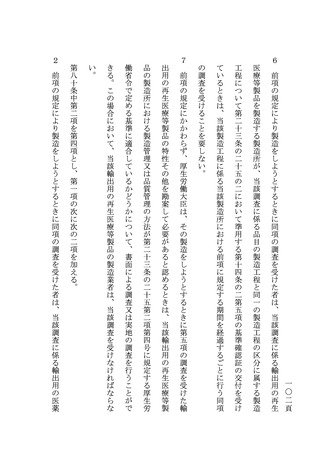 一〇二頁
6　前項の規定により製造をしようとするときに同項の調査を受けた者は、当該調査に係る輸出用の再生
医療等製品を製造する製造所が、当該調査に係る品目の製造工程と同一の製造工程の区分に属する製造
工程について第二十三条の二十五の二において準用する第十四条の二第五項の基準確認証の交付を受け
ているときは、当該製造工程に係る当該製造所における前項に規定する期間を経過するごとに行う同項
の調査を受けることを要しない。
7　前項の規定にかかわらず、厚生労働大臣は、その製造をしようとするときに第五項の調査を受けた輸
出用の再生医療等製品の特性その他を勘案して必要があると認めるときは、当該輸出用の再生医療等製
品の製造所における製造管理又は品質管理の方法が第二十三条の二十五第二項第四号に規定する厚生労
働省令で定める基準に適合しているかどうかについて、書面による調査又は実地の調査を行うことがで
きる。この場合において、当該輸出用の再生医療等製品の製造業者は、当該調査を受けなければならな
い。
第八十条中第二項を第四項とし、第一項の次に次の二項を加える。
2　前項の規定により製造をしようとするときに同項の調査を受けた者は、当該調査に係る輸出用の医薬